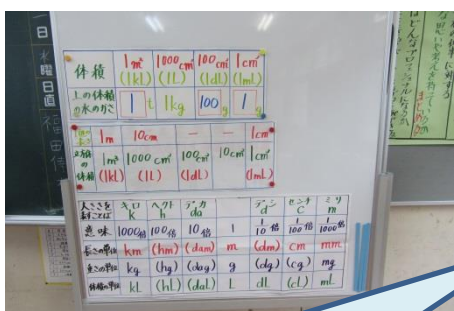 日
水曜日
日直
福田
体積 1m³ 1000cm³ 100cm³ 1cm³
(1kL) (1L) (1dL) (1mL)
上の体積の水のおもさ 1t 1kg 100g 1g
1m 10cm — — 1cm
立方体の体積 1m³ 1000cm³ 100cm³ 10cm³ 1cm³
(1kL) (1L) (1dL) (1mL)
大きさを表すことば キロ k ヘクト h デカ da デシ d センチ c ミリ m
意味 1000倍 100倍 10倍 1 1/10倍 1/100倍 1/1000倍
長さの単位 km (hm) (dam) m (dm) cm mm
重さの単位 kg (hg) (dag) g (dg) (cg) mg
体積の単位 kL (hL) (daL) L dL (cL) mL